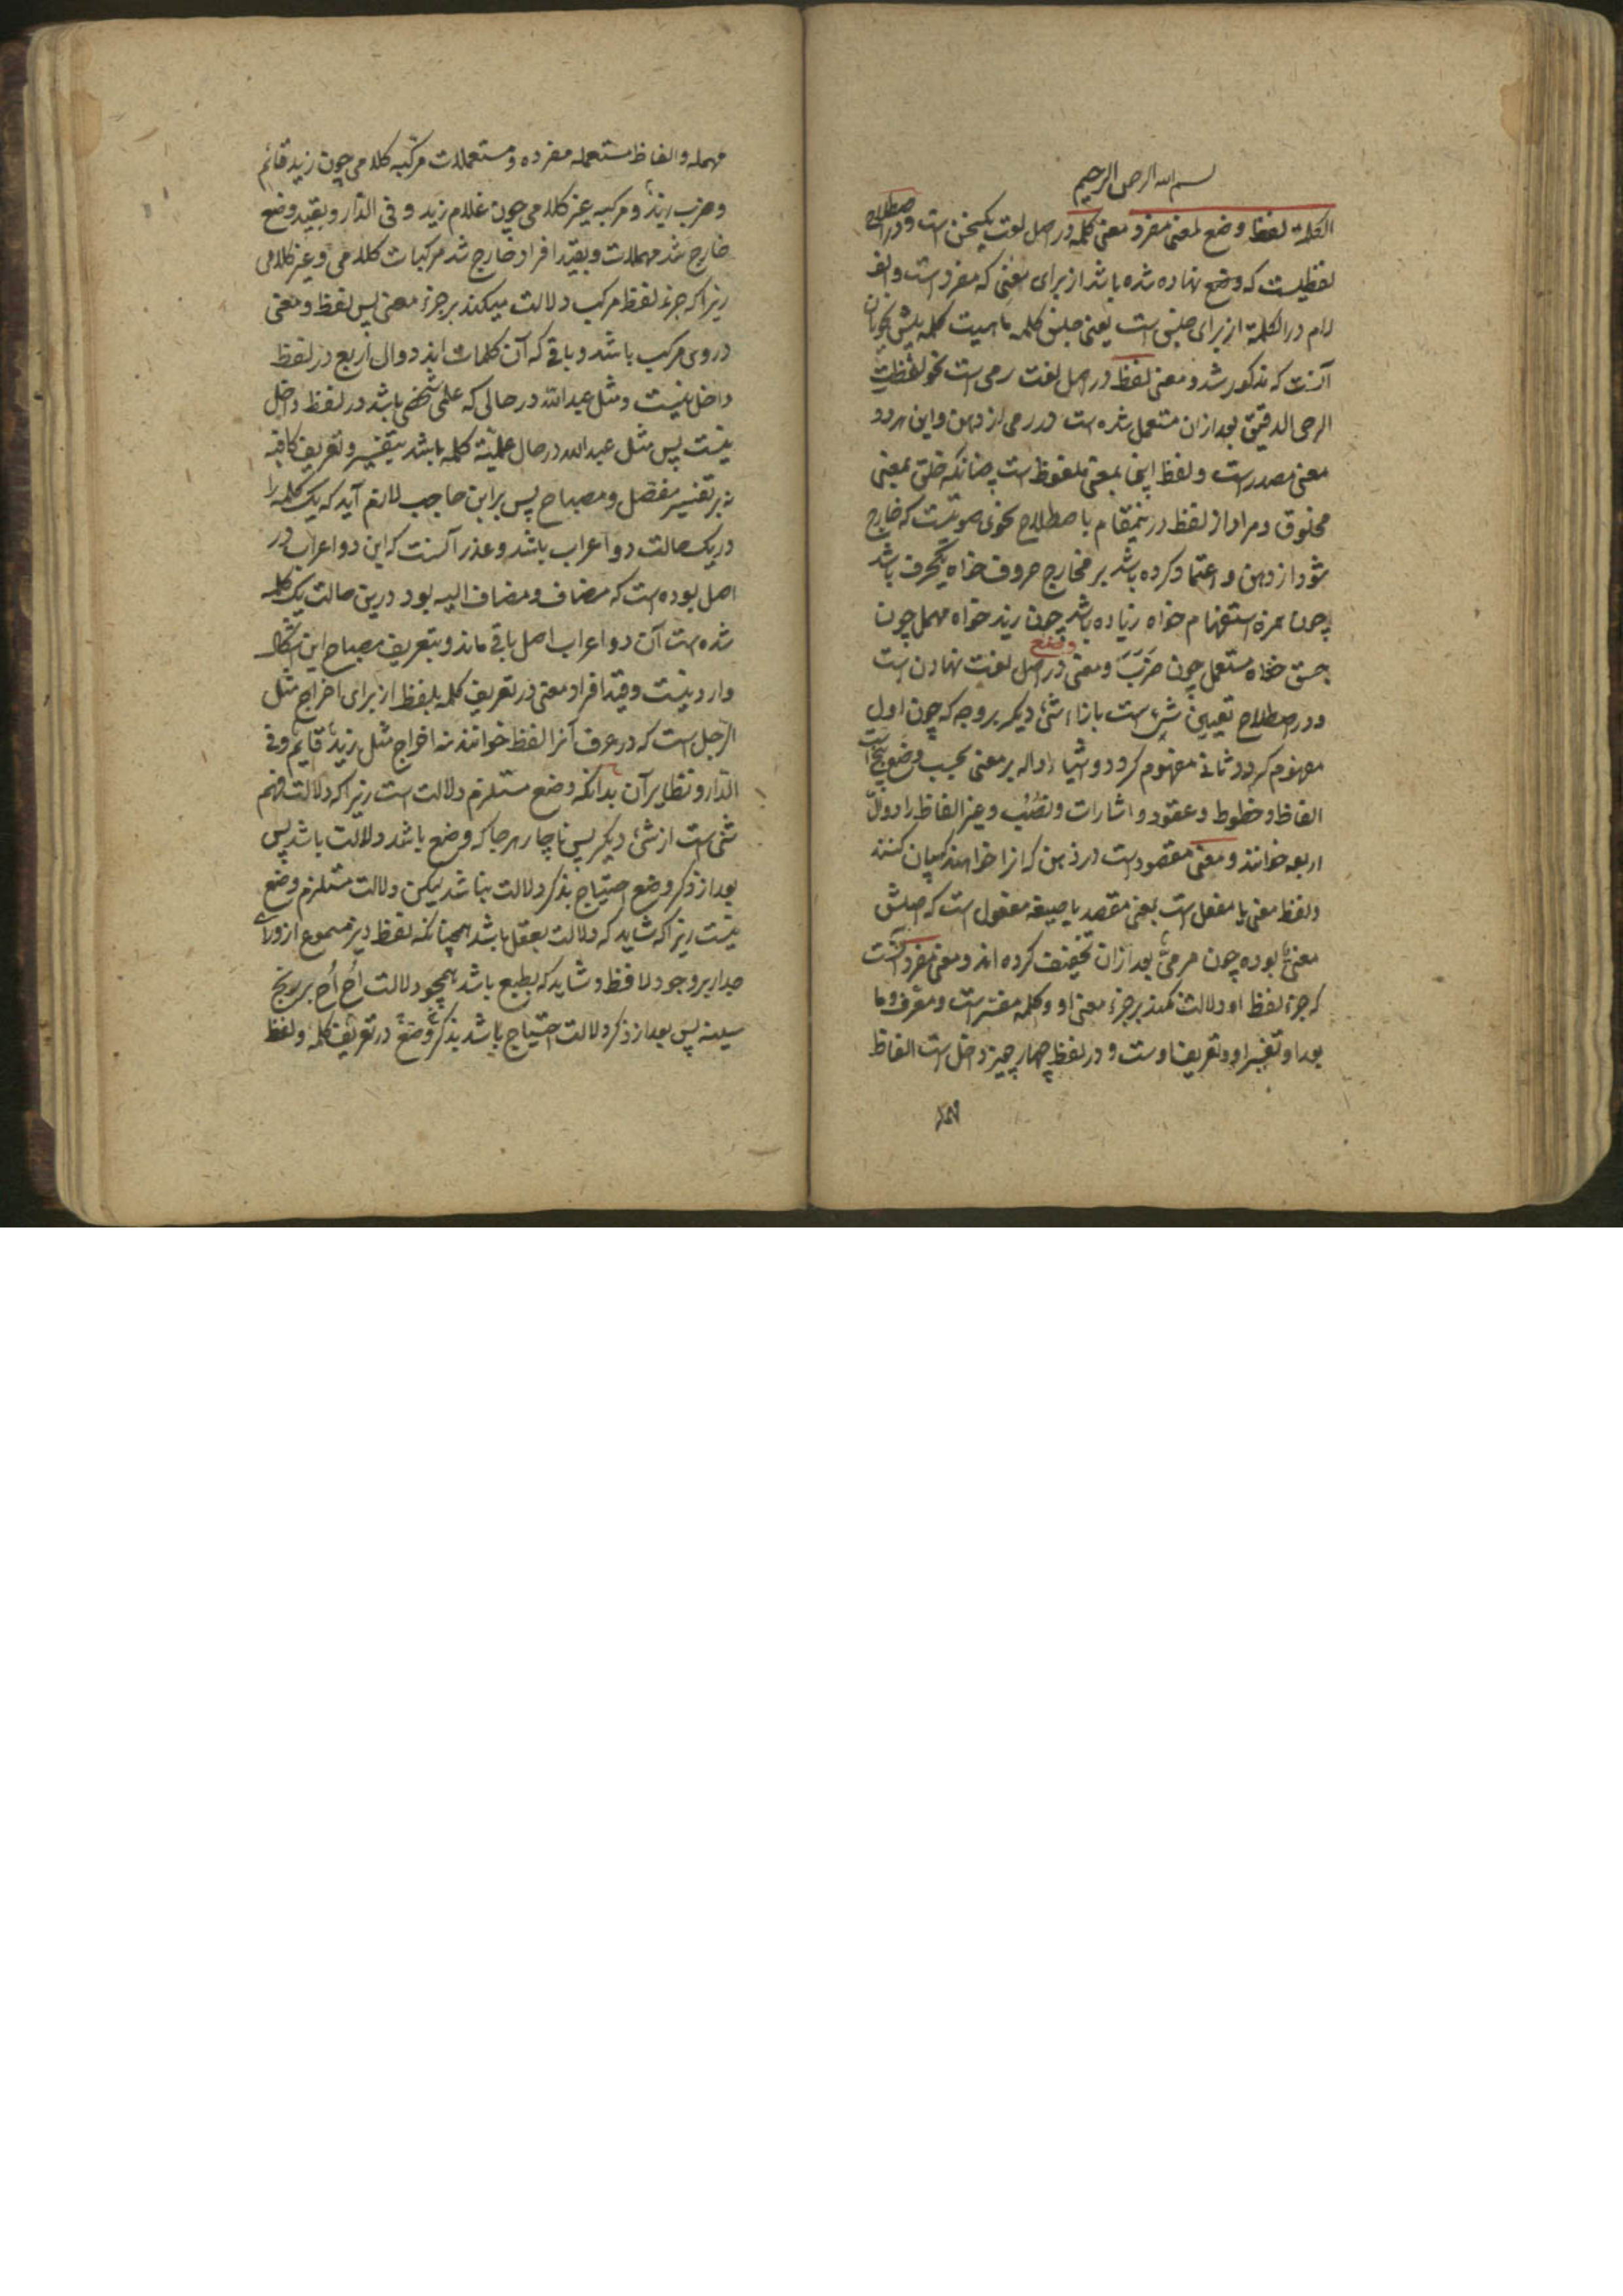 بسم الله الرحمن الرحیم
الکلمة لفظ وضع لمعنی مفرد معنی کلمه در اصل لغت یکسخن است و در اصطلاح
لفظیست که وضع نهاده شده باشد از برای معنی که مفرد است و الف
لام در الکلمة از برای جنس است یعنی جنس کلمه ماهیت کلمه پیش نحویان
آنست که مذکور شد و معنی لفظ در اصل لغت رمی است نحو لفظت
الرحی الدقیق بعد ازان مستعمل شده است در رمی از دهن و این هر دو
معنی مصدر است و لفظ اینجا بمعنی ملفوظ است چنانکه خلق بمعنی
مخلوق و مراد از لفظ در ینمقام باصطلاح نحوی صوتیست که خارج
شود از دهن و اعتماد کرده باشد بر مخارج حروف خواه یکحرف باشد
چون همزه استفهام خواه زیاده باشد چون زید خواه مهمل چون
جسق خواه مستعمل چون ضرب و معنی وضع در اصل لغت نهادن است
و در اصطلاح تعیین شیء است بازاء شیء دیکر بر وجه که چون اول
مفهوم کردد ثانی مفهوم کردد و اشیاء داله بر معنی بحسب وضع پنج است
الفاظ و خطوط و عقود و اشارات و نصب و غیر الفاظ را دوال
اربعه خوانند و معنی مقصود است در ذهن که انرا خواهند که بیان کنند
و لفظ معنی یا مفعل است بمعنی مقصد یا صیغه مفعول است که اصلش
معنی بوده چون مرمی بعد ازان تخفیف کرده اند و معنی مفرد آنست
که جزء لفظ او دلالت نکند بر جزء معنی او و کلمه مفسر است و معرف و ما
بعد او تفسیر او و تعریف اوست و در لفظ چهار چیز داخل است الفاظ
مهمله و الفاظ مستعمله مفرده و مستعملات مرکبه کلامی چون زید قائم
و ضرب زید و مرکبه غیر کلامی چون غلام زید و فی الدار و بقید وضع
خارج شد مهملات و بقید افراد خارج شد مرکبات کلامی و غیر کلامی
زیرا که جزء لفظ مرکب دلالت میکند بر جزء معنی پس لفظ و معنی
در وی مرکب باشد و باقی که آن کلمات اند دوال اربع در لفظ
داخل نیست و مثل عبد الله در حالی که علمی شخصی باشد در لفظ داخل
نیست پس مثل عبد الله در حال علمیة کلمه باشد بتفسیر و تعریف کافیه
نه بر تفسیر مفصل و مصباح پس بر ابن حاجب لازم آید که یک کلمه را
در یک حالت دو اعراب باشد و عذر آنست که این دو اعراب در
اصل بوده است که مضاف و مضاف الیه بود درین حالت یک کلمه
شده است آن دو اعراب اصل باقی ماند و بتعریف مصباح این اشکال
وارد نیست و قید افراد معنی در تعریف کلمه بلفظ از برای اخراج مثل
الرجل است که در عرف آنرا لفظ خوانند نه اخراج مثل زید قایم و فی
الدار و نظایر آن بدانکه وضع مستلزم دلالت است زیرا که دلالت فهم
شی است از شیء دیکر پس ناچار هر جا که وضع باشد دلالت باشد پس
بعد از ذکر وضع احتیاج بذکر دلالت نباشد لیکن دلالت مستلزم وضع
نیست زیرا که شاید که دلالت بعقل باشد همچنانکه لفظ دیز مسموع از ورای
جدار بر وجود لافظ و شاید که بطبع باشد همچو دلالت اُح اُح بر وجع
سینه پس بعد از ذکر دلالت احتیاج باشد بذکر وضع در تعریف کلمه و لفظ